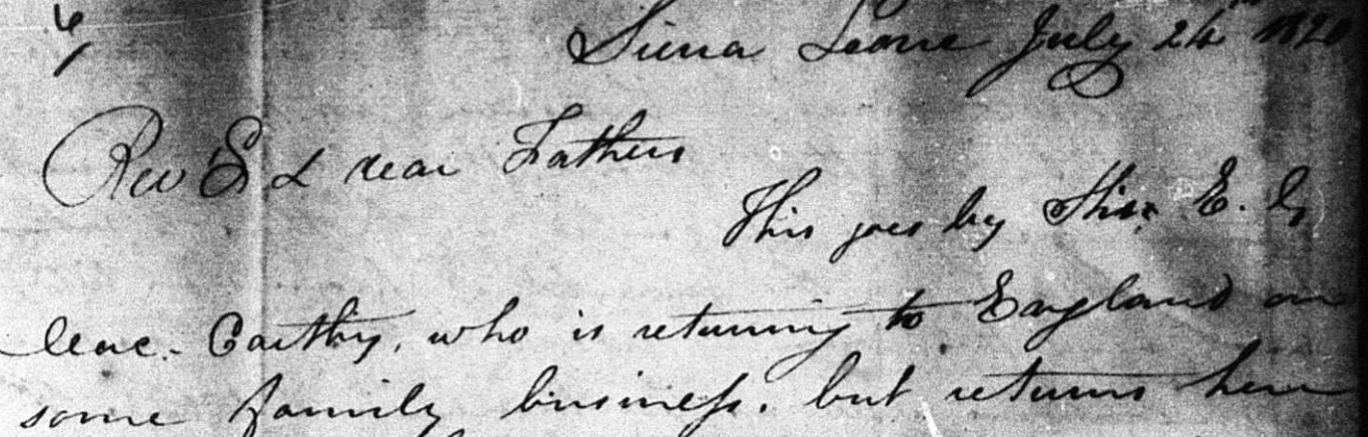 6/
Sierra Leone July 24th 1820
Rev S & dear Fathers
This goes by His E. G
Mac-Carthy, who is returning to England on
some family business, but returns here